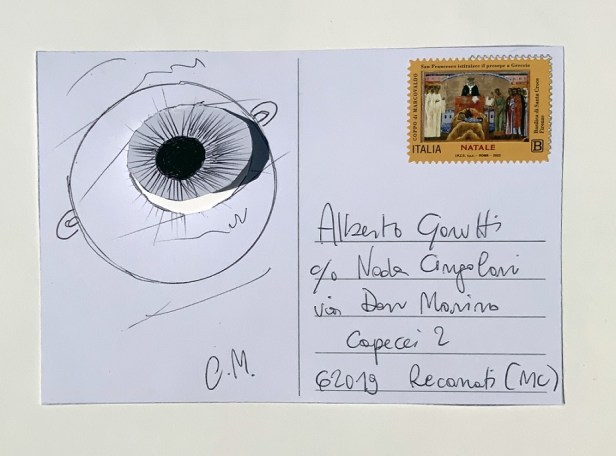 San Francesco istitutore il presepe a Greccio
COPPO di MARCOVALDO
Basilica di Santa Croce
Firenze
ITALIA
NATALE
B
Alberto Garutti
c/o Nada Cingolani
via Don Marino
Capecci 2
62019 Recanati (MC)
C.M.